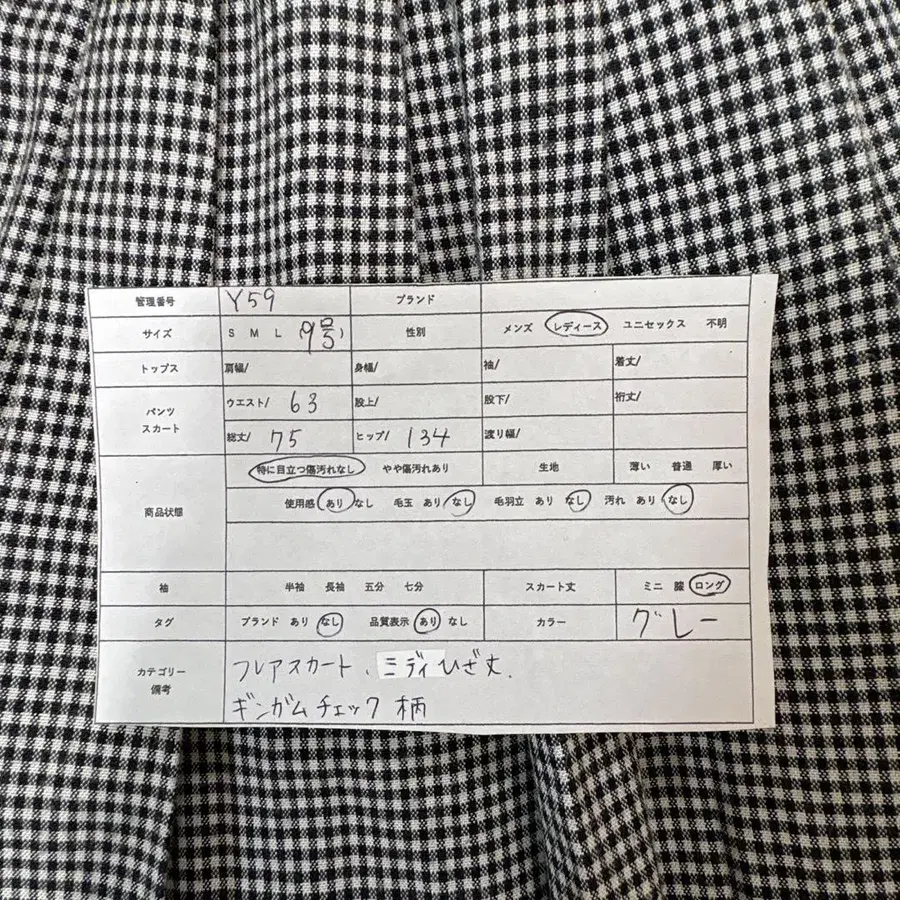 管理番号 Y59 ブランド
サイズ S M L (9号) 性別 メンズ レディース ユニセックス 不明
トップス 肩幅/ 身幅/ 袖/ 着丈/
パンツ スカート ウエスト/ 63 股上/ 股下/ 裄丈/
総丈/ 75 ヒップ/ 134 渡り幅/
商品状態 特に目立つ傷汚れなし やや傷汚れあり 生地 薄い 普通 厚い
使用感 あり なし 毛玉 あり なし 毛羽立 あり なし 汚れ あり なし
袖 半袖 長袖 五分 七分 スカート丈 ミニ 膝 ロング
タグ ブランド あり なし 品質表示 あり なし カラー グレー
カテゴリー 備考 フレアスカート、ミディひざ丈.
ギンガムチェック柄